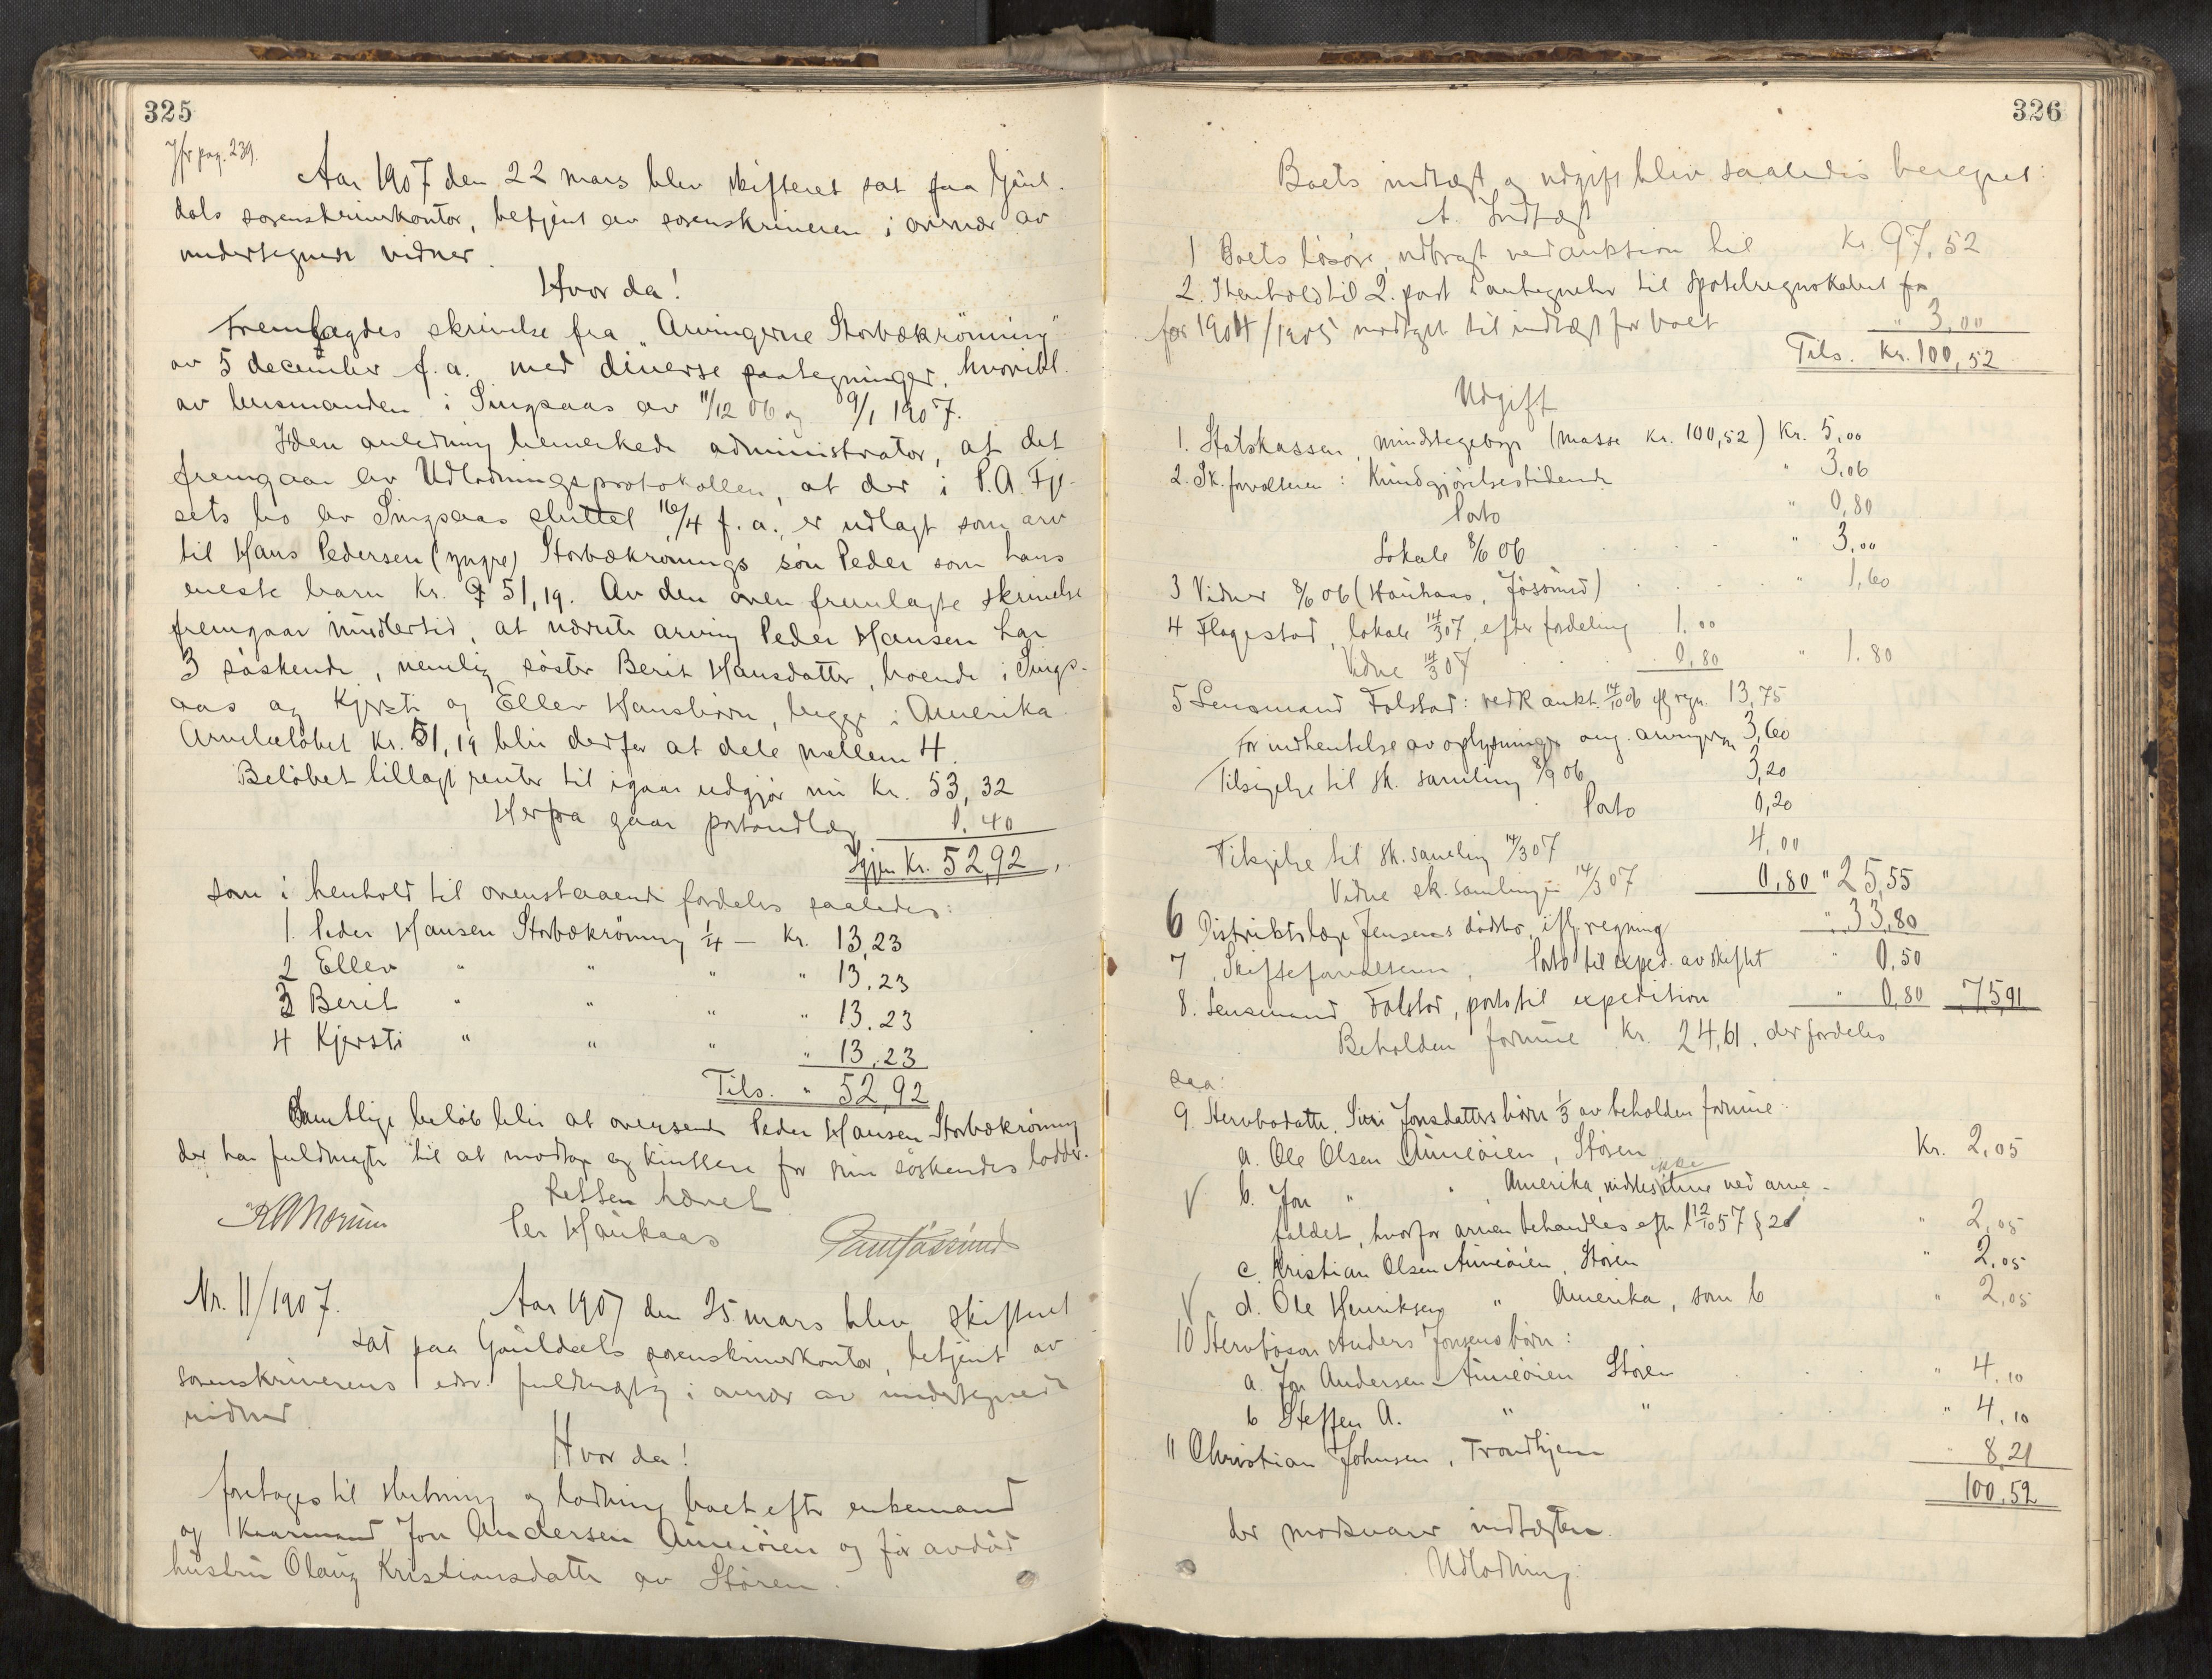 325
Jfr pag. 239.
Aar 1907 den 22 mars blev skifteret sat paa Gaul-
dals sorenskriverkontor, betjent av sorenskriveren i overvær av
undertegnede vidner.
Hvor da!
Fremlagdes skrivelse fra "Arvingerne Storbækrönning"
av 5 december f. a. med diverse paategninger, hvoribl.
av lensmanden i Singsaas av 11/12 06 og 9/1 1907.
I den anledning bemerkede administrator, at det
fremgaar av Udlodningsprotokollen, at der i P. A.
sets bo av Singsaas sluttet 16/4 f. a. er udlagt som arv
til Hans Pedersen (yngre) Storbækrönnings sön Peder som hans
eneste barn Kr. 51,19. Av den oven fremlagte skrivelse
fremgaar imidlertid, at nævnte arving Peder Hansen har
3 söskende, nemlig söster Berit Hansdatter, boende i Sings-
aas og Kjersti og Ellev Hansbörn, begge i Amerika.
Arvebelöbet Kr. 51,19 blir derfor at dele mellem 4.
Belöbet tillagt renter til igaar udgjör nu Kr. 53,32
Herfra gaar portoudlæg 0.40
Igjen Kr. 52,92
som i henhold til ovenstaaende fordeles saaledes:
1 Peder Hansen Storbækrönning 1/4 — Kr. 13,23
2 Ellev " " " " 13.23
3 Berit " " " " 13.23
4 Kjersti " " " " 13.23
Tils. " 52,92
Samtlige belöb blir at oversende Peder Hansen Storbækrönning
der har fuldmagt til at modtage og kvittere for sine söskendes lodder.
Retten hævet
Per Haukaas
Nr. 11/1907.
Aar 1907 den 25 mars blev skifteret
sat paa Gauldals sorenskriverkontor, betjent av
sorenskriverens edsv. fuldmægtig i overvær av undertegnede
vidner.
Hvor da!
foretages til slutning og lodning boet efter enkemand
og kaarmand Jon Andersen Auneöien og för avdöd
hustru Olaug Kristiansdatter av Stören.
326
Boets indtægt og udgift blev saaledes beregnet:
A. Indtægt
1 Boets lösöre, udbragt ved auktion til Kr. 97,52
2. I henhold til 2. post i antegnelser til sportelregnskabet fra
for 1904/1905 modtaget til indtægt for boet " 3,00
Tils. Kr. 100,52
Udgift
1. Statskassen, mindstegebyr (masse Kr. 100,52) Kr. 5,00
2. Sk. forvalteren: Kundgjörelsestidende " 3,06
Porto " 0,80
Lokale 8/6 06 " 3,00
3 Vidner 8/6 06 (Haukaas, Jössund) " 1,60
4 Flagestad, lokale 14/3 07, efter fordeling 1.00
Vidne 14/3 07 0,80 " 1.80
5 Lensmand Folstad: vedk. aukt. 14/10 06 ifl. regn. 13,75
For indhentelse av oplysninger ang. arvingerne 3,60
Tilsigelse til sk. samling 8/9 06 3,20
Porto 0,20
Tilsigelse til sk. samling 14/3 07 4,00
Vidne sk. samlingen 14/3 07 0,80 " 25,55
6 Distriktslæge Jensens dödsbo, ifl. regning " 33,80
7 Skifteforvalteren, Porto til exped. av skiftet " 0,50
8. Lensmand Folstad, porto til expedition " 0,80 7591
Beholden formue Kr. 24,61, der fordeles
saa:
9. Stervbodatter Siri Jonsdatters börn 1/3 av beholden formue:
a. Ole Olsen Auneöien, Stören Kr. 2,05
b. Jon " " Amerika, ikke ved arve-
faldet, hvorfor arven behandles efter l 12/10 57 § 20 " 2,05
c. Kristian Olsen Auneöien, Stören " 2,05
d. Ole Henriksen " Amerika, som b " 2,05
10 Stervbosön Anders Jonsens börn:
a. Jon Andersen Auneöien Stören " 4,10
b Steffen A. " " " 4,10
11 Christian Johnsen, Trondhjem " 8,21
100,52
der modsvarer indtægten.
Udlodning: